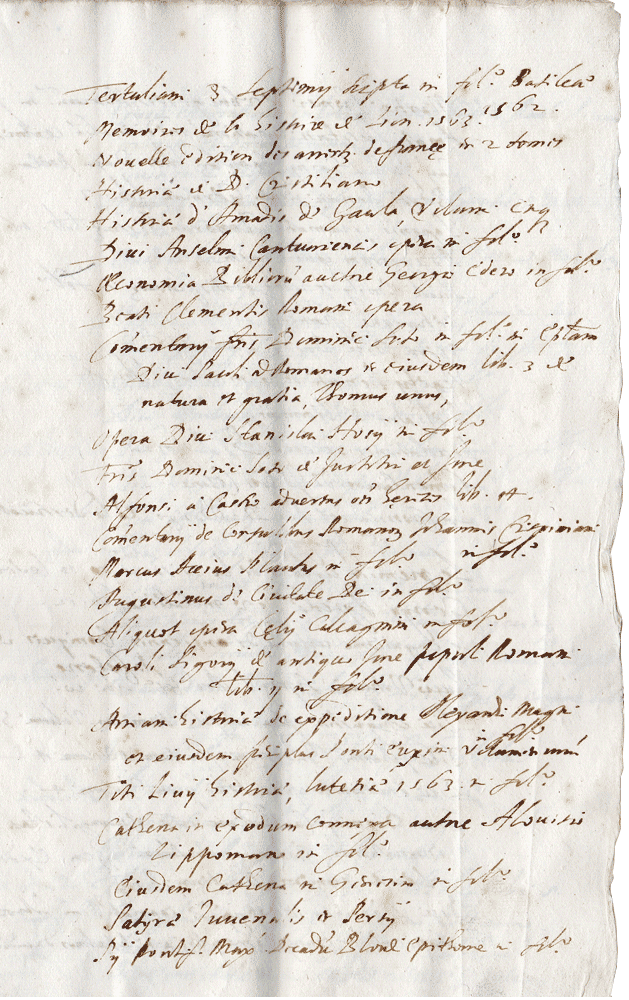 Tertuliani 3 Septimij scripta in fol.º Basileæ
Memoires de la histoire de Lion. 1563. 1562.
Nouelle edition des arrestz de in 2 tomes
Histoire de D. Cristiliano
Historia d'Amadis de Gaula, Volum. cinq
Diui Anselmi Cantuariensis opera in fol.º
Œconomia Bibliorũ auctore Georgio Edero in fol.º
Beati Clementis Romani opera
Cõmentarij fris Dominici Soto in fol.º in eptam
Diui Pauli ad Romanos et eiusdem lib. 3 de
natura et gratia, thomus unus,
Opera Diui Stanislai Hosij in fol.º
Fris Dominici Soto de Justitia et Jure
Alfonsi a Castro aduersus oẽs hereses lib. 14.
Cõmentarij de Consulibus Romanoꝝ Johannis Cuspiniani
Marcus Accius Plautus in fol.º in fol.º
Augustinus de Ciuitate Dei in fol.º
Aliquot opera Cęlij Calcagnini in fol.º
Caroli Sigonij de antiquo Jure populi Romani
lib. ij in fol.º
Arriani historia de expeditione Alexandri Magni
in fol.º
et eiusdem periplus Ponti euxini Volumen unũ
Titi Liuij historia, lutetiæ 1563 in fol.º
Cathena in exodum connexa autore Alouisio
Lippomano in fol.º
Eiusdem Cathena in Genesim in fol.º
Satyræ Juuenalis et Persij
Pij Pontif. Max. Decadũ Blondi epithome in fol.º